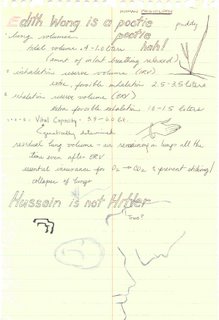 Edith Wong is a poetic
poetic
hah!
lung volumes
tidal volume .4-1.0 liter
(amt of air breathing relaxed)
* inhalation reserve volume (IRV)
extra forcible inhalation 2.5-3.5 liters
* exhalation reserve volume (ERV)
extra forcible exhalation 1.0-1.5 liters
Vital Capacity = 3.9-6.0 l.
(genetically determined
residual lung volume - air remaining in lungs all the
time even after ERV
essential insurance for O₂ → CO₂ & prevent sticking/
collapse of lungs
Hussein is not Hitler
True?